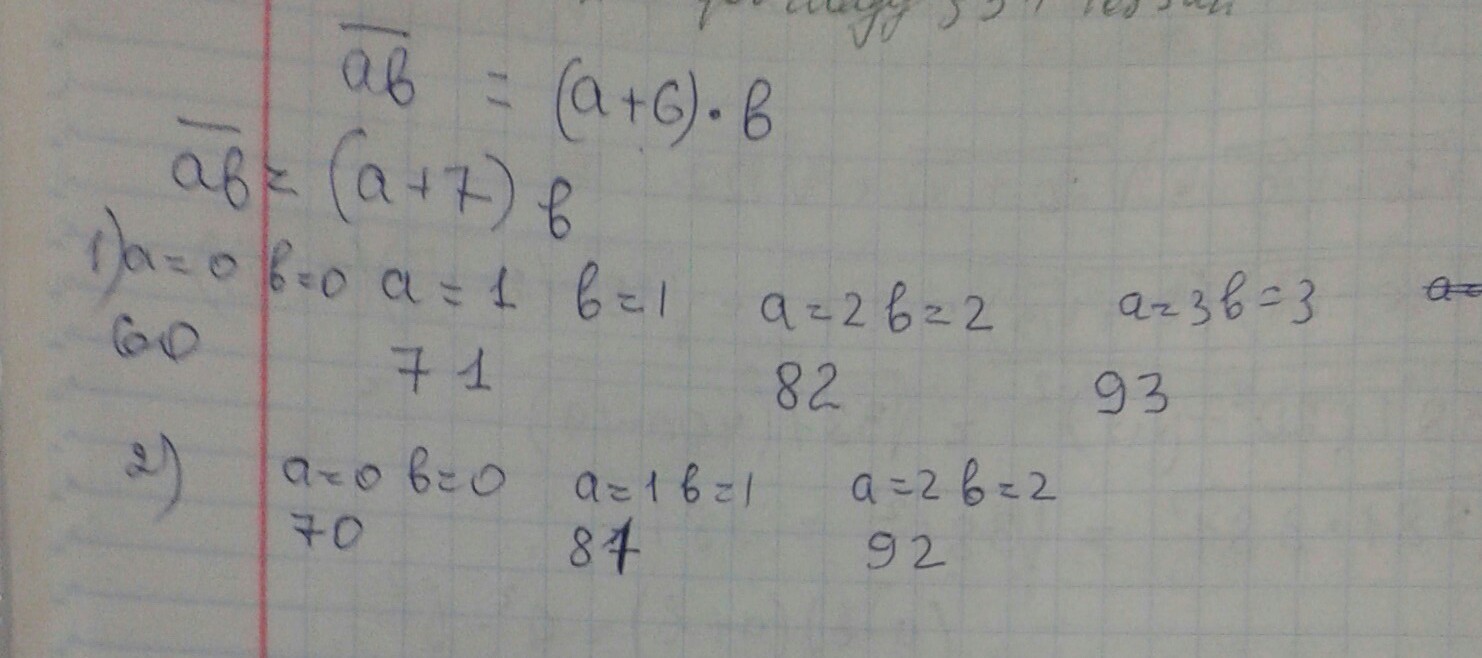 ав = (а+6)·в
ав = (а+7) в
1) а=0 в=0 а=1 в=1 а=2 в=2 а=3 в=3 а=
60 71 82 93
2) а=0 в=0 а=1 в=1 а=2 в=2
70 81 92